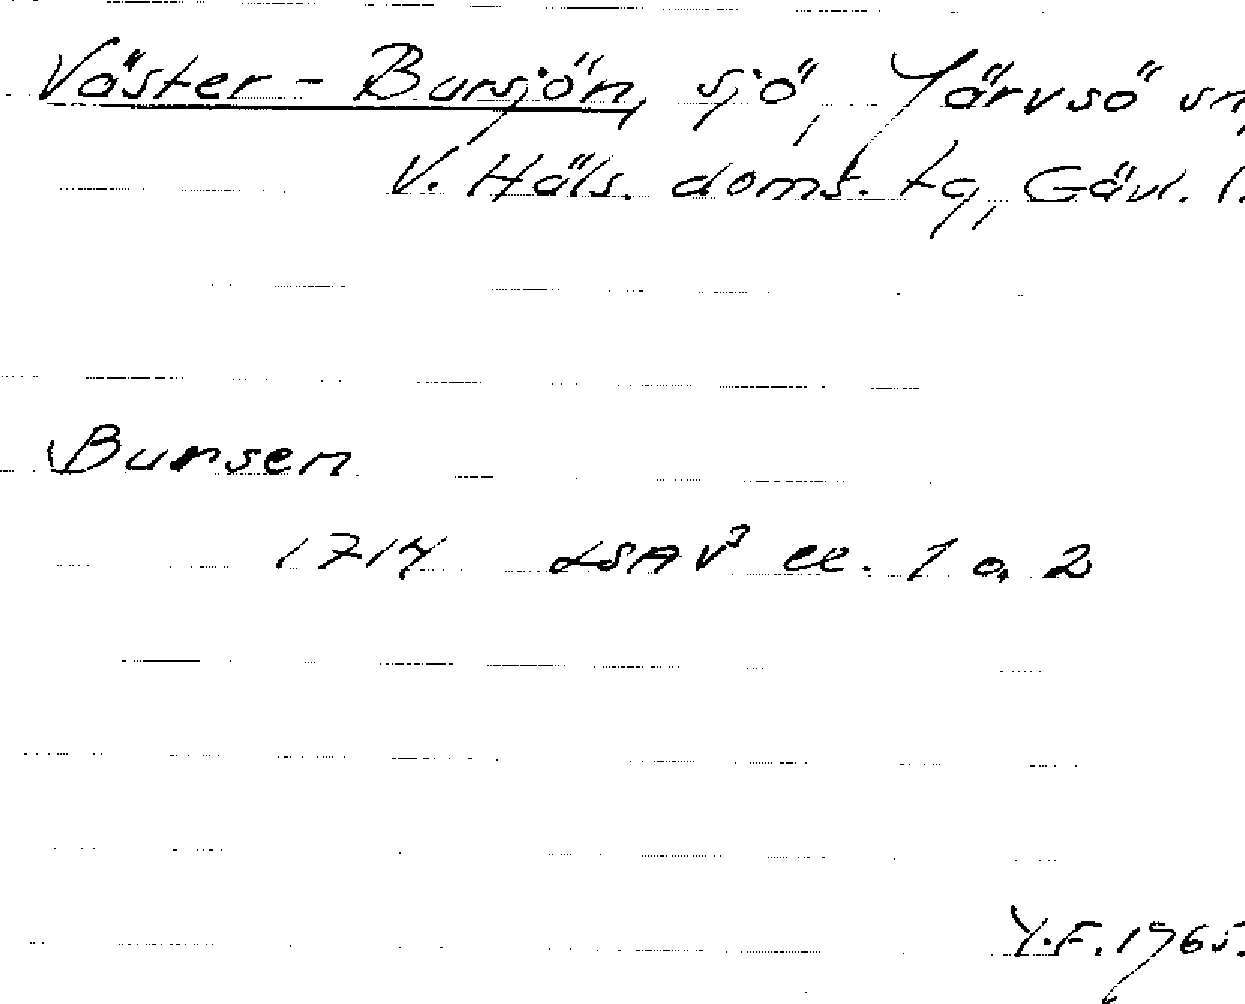 Väster-Bursjön, sjö, Järvsö sn,
V. Häls. doms. tg, Gävl. l.
Bursen
1714 LSA V³ ee. 1 a, 2
Y.F. 1965.